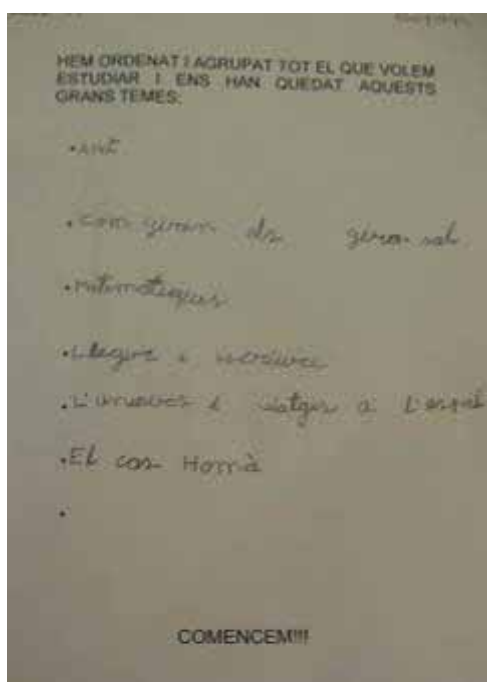 HEM ORDENAT I AGRUPAT TOT EL QUE VOLEM
ESTUDIAR I ENS HAN QUEDAT AQUESTS
GRANS TEMES:
• Art
• com giren els gira-sols
• matemàtiques
• Llegir i escriure
• L'univers i viatges a l'espai
• El cos Homà
•
COMENCEM!!!